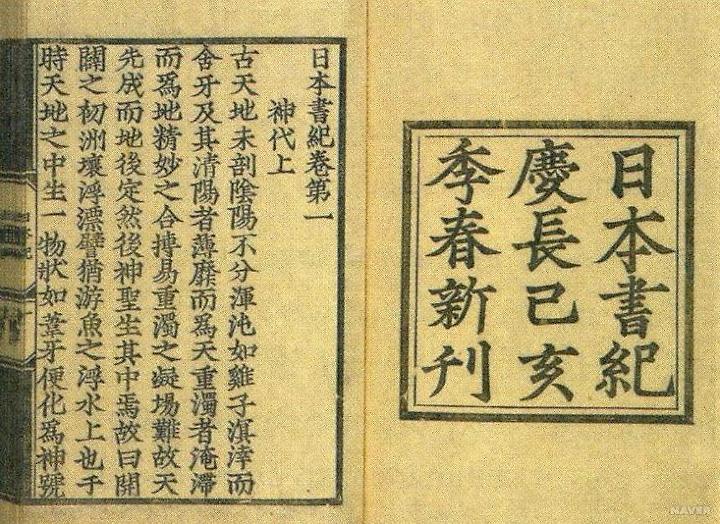 日本書紀
慶長己亥
季春新刊
日本書紀卷第一
神代上
古天地未剖陰陽不分渾沌如雞子溟涬而
含牙及其清陽者薄靡而爲天重濁者淹滯
而爲地精妙之合搏易重濁之凝場難故天
先成而地後定然後神聖生其中焉故曰開
闢之初洲壤浮漂譬猶游魚之浮水上也于
時天地之中生一物狀如葦牙便化爲神號
NAVER